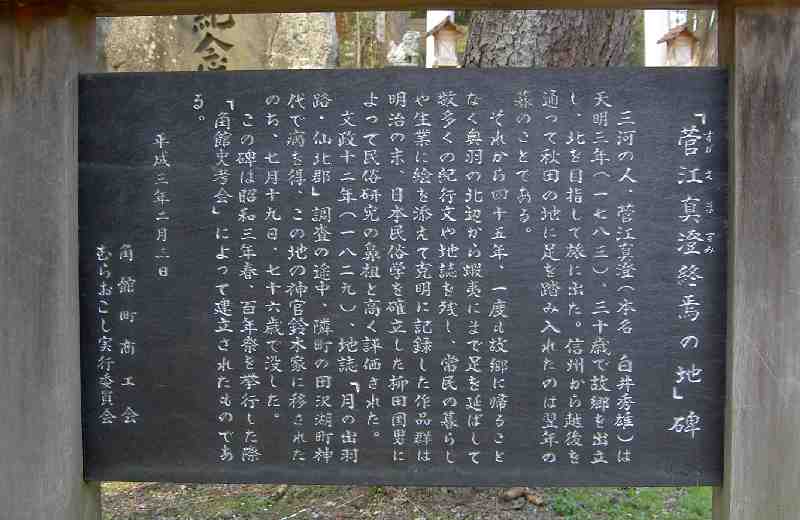 「菅江真澄終焉の地」碑
すが え ま すみ
三河の人、菅江真澄(本名 白井秀雄)は
天明三年(一七八三)、三十歳で故郷を出立
し、北を目指して旅に出た。信州から越後を
通って秋田の地に足を踏み入れたのは翌年の
暮のことである。
それから四十五年、一度も故郷に帰ること
なく奥羽の北辺から蝦夷にまで足を延ばして
数多くの紀行文や地誌を残し、常民の暮らし
や生業に絵を添えて克明に記録した作品群は
明治の末、日本民俗学を確立した柳田国男に
よって民俗研究の鼻祖と高く評価された。
文政十二年(一八二九)、地誌『月の出羽
路・仙北郡』調査の途中、隣町の田沢湖町神
代で病を得、この地の神官鈴木家に移された
のち、七月十九日、七十六歳で没した。
この碑は昭和三年春、百年祭を挙行した際
「角館史考会」によって建立されたものであ
る。
平成三年二月 日
角館町商工会
むらおこし実行委員会
紀念